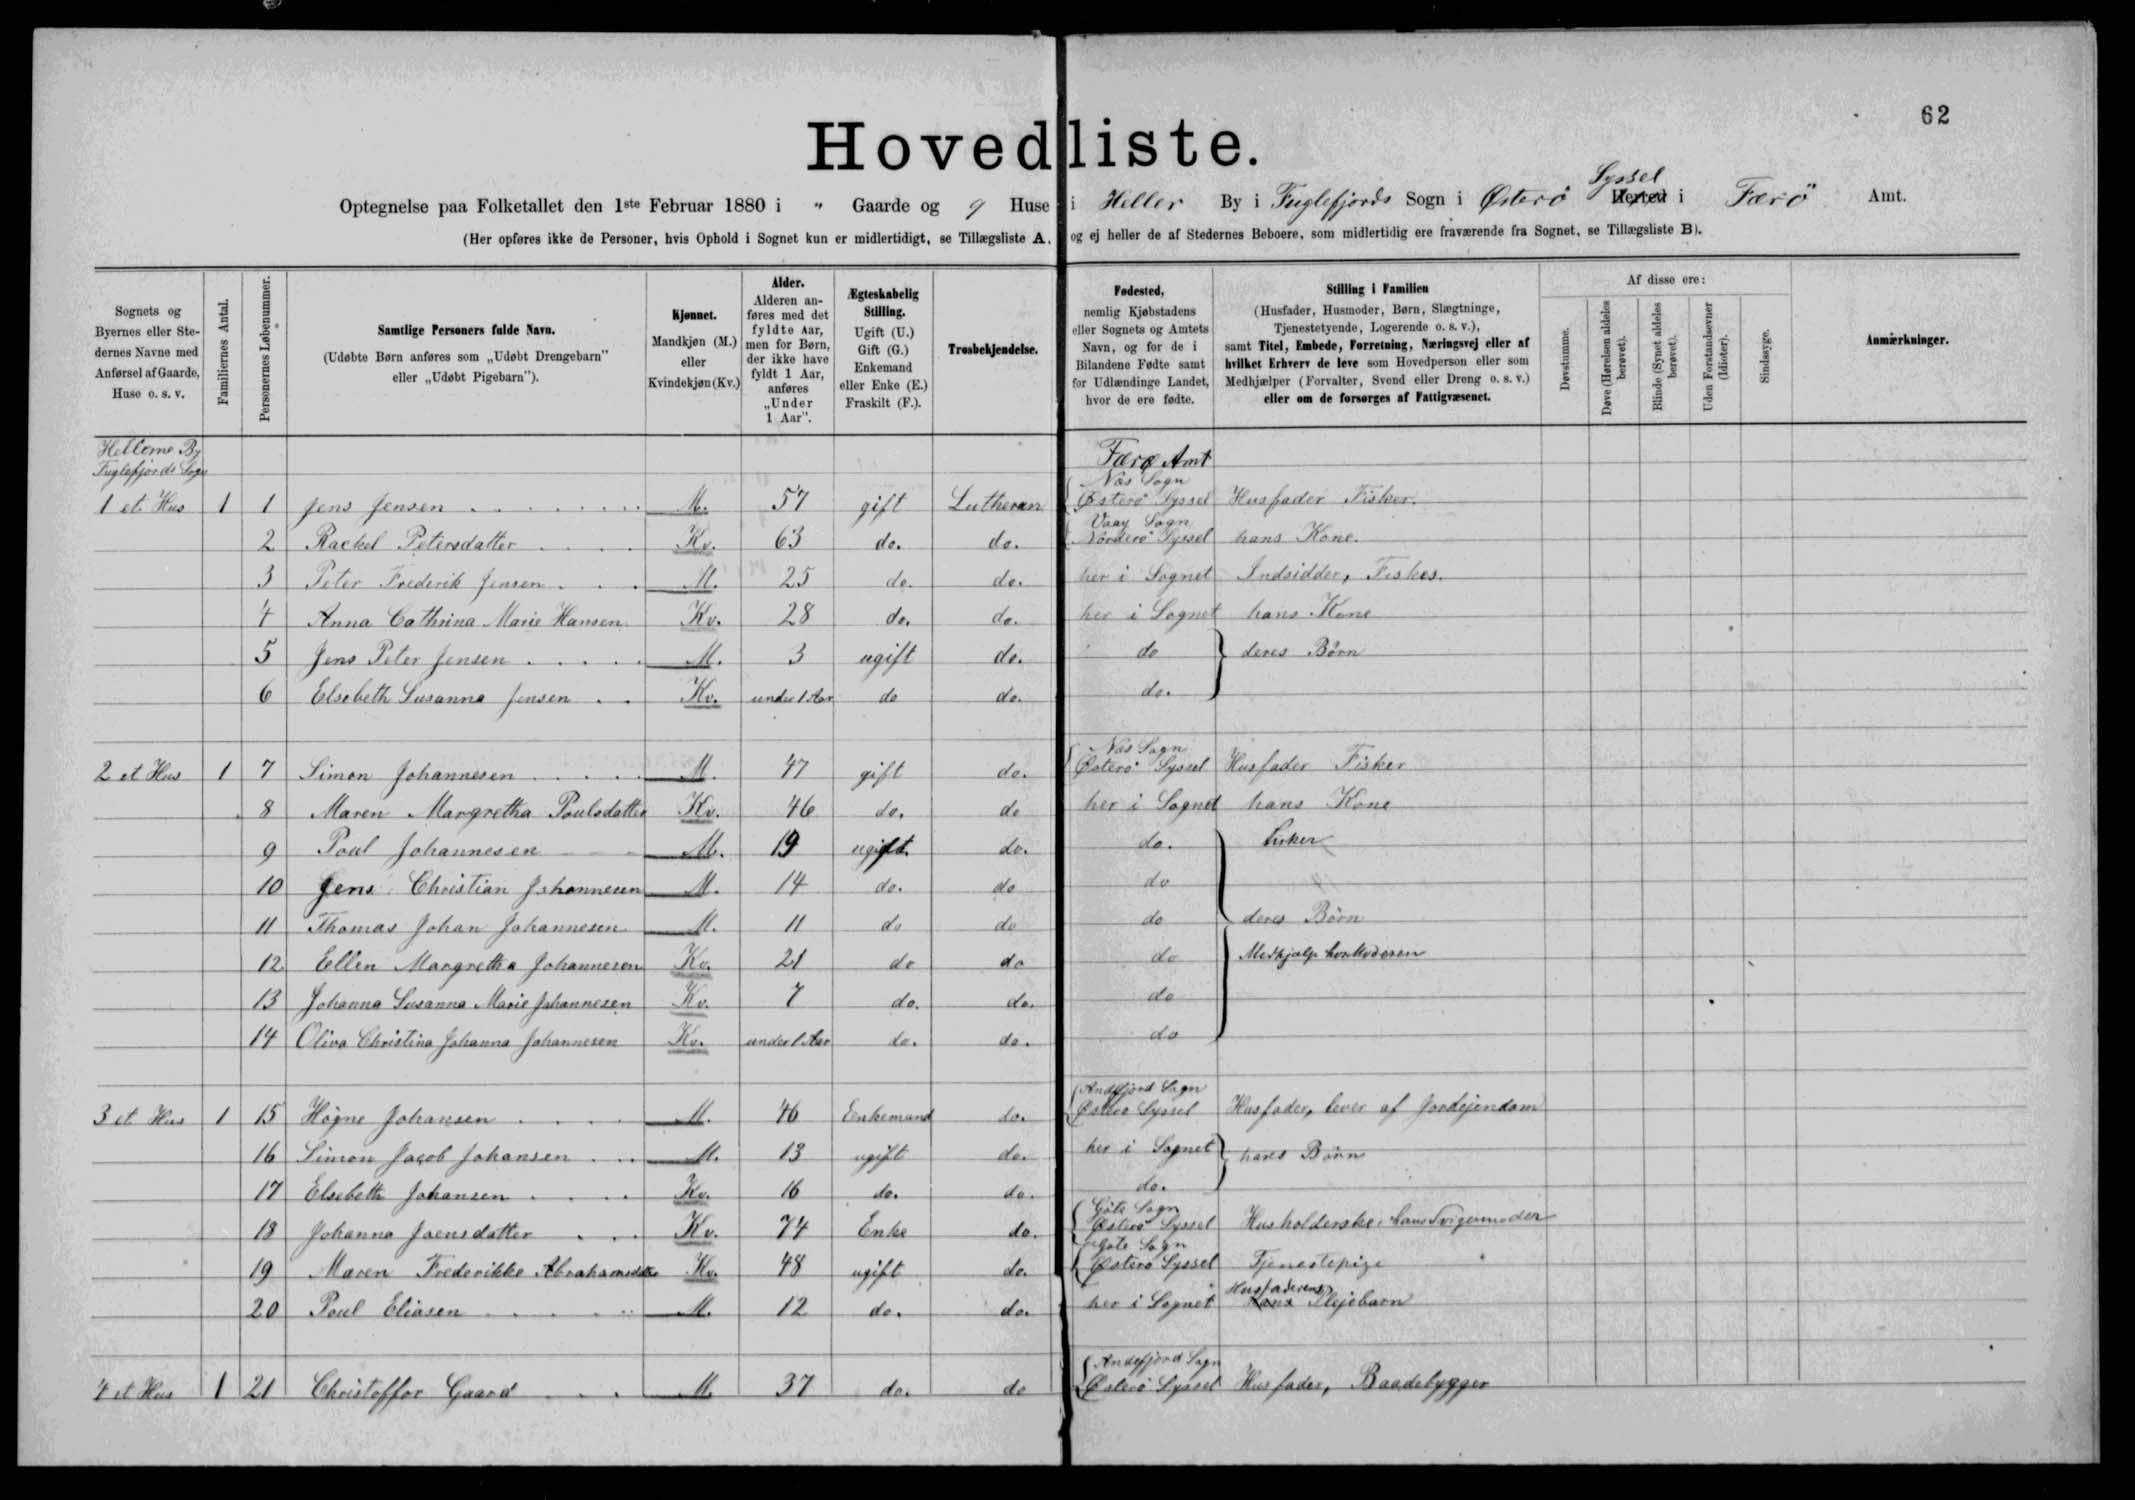 62
Hovedliste.
Optegnelse paa Folketallet den 1ste Februar 1880 i " Gaarde og 9 Huse i Heller By i Fuglefjords Sogn i Østerö Syssel Herred i Færö Amt.
(Her opføres ikke de Personer, hvis Ophold i Sognet kun er midlertidigt, se Tillægsliste A. og ej heller de af Stedernes Beboere, som midlertidig ere fraværende fra Sognet, se Tillægsliste B).
Sognets og Byernes eller Stedernes Navne med Anførsel af Gaarde, Huse o. s. v.
Familiernes Antal.
Personernes Løbenummer.
Samtlige Personers fulde Navn.
(Udøbte Børn anføres som „Udøbt Drengebarn" eller „Udøbt Pigebarn").
Kjønnet.
Mandkjøn (M.) eller Kvindekjøn (Kv.)
Alder.
Alderen anføres med det fyldte Aar, men for Børn, der ikke have fyldt 1 Aar, anføres „Under 1 Aar".
Ægteskabelig Stilling.
Ugift (U.) Gift (G.) Enkemand eller Enke (E.) Fraskilt (F.).
Trosbekjendelse.
Fødested,
nemlig Kjøbstadens eller Sognets og Amtets Navn, og for de i Bilandene Fødte samt for Udlændinge Landet, hvor de ere fødte.
Stilling i Familien
(Husfader, Husmoder, Børn, Slægtninge, Tjenestetyende, Logerende o. s. v.),
samt Titel, Embede, Forretning, Næringsvej eller af hvilket Erhverv de leve som Hovedperson eller som Medhjælper (Forvalter, Svend eller Dreng o. s. v.) eller om de forsørges af Fattigvæsenet.
Af disse ere:
Døvstumme.
Døve (Hørelsen aldeles berøvet).
Blinde (Synet aldeles berøvet).
Uden Forstandsevner (Idioter).
Sindssyge.
Anmærkninger.
Hellerne By
Fuglefjords Sogn
Færø Amt
1 et Hus 1 1 Jens Jensen M. 57 gift Lutheran Næs Sogn Østerö Syssel Husfader Fisker.
2 Rackel Petersdatter Kv. 63 do. do. Vaay Sogn Norderö Syssel hans Kone.
3 Peter Frederik Jensen M. 25 do. do. her i Sognet Indsidder, Fisker.
4 Anna Cathrina Marie Hansen Kv. 28 do. do. her i Sognet hans Kone
5 Jens Peter Jensen M. 3 ugift do. do deres Börn
6 Elsebeth Susanna Jensen Kv. under 1 Aar do do. do.
2 et Hus 1 7 Simon Johannesen M. 47 gift do. Næs Sogn Østerö Syssel Husfader Fisker
8 Maren Margretha Poulsdatter Kv. 46 do. do her i Sognet hans Kone
9 Poul Johannesen M. 19 ugift do. do. fisker
10 Jens Christian Johannesen M. 14 do. do do
11 Thomas Johan Johannesen M. 11 do do do deres Börn
12 Ellen Margretha Johannesen Kv. 21 do do do Medhjælp hos Moderen
13 Johanna Susanna Marie Johannesen Kv. 7 do. do. do
14 Oliva Christina Johanna Johannesen Kv. under 1 Aar do. do. do
3 et Hus 1 15 Högne Johansen M. 46 Enkemand do. Andefjord Sogn Østerö Syssel Husfader, lever af Jordejendom
16 Simon Jacob Johansen M. 13 ugift do. her i Sognet hans Börn
17 Elsebeth Johansen Kv. 16 do. do. do.
18 Johanna Joensdatter Kv. 74 Enke do. Göte Sogn Østerö Syssel Husholderske, hans Svigermoder
19 Maren Frederikke Abrahamsdatter Kv. 48 ugift do. Göte Sogn Østerö Syssel Tjenestepige
20 Poul Eliasen M. 12 do. do. her i Sognet Husfaderens Hans Plejebarn
4 et Hus 1 21 Christoffer Gaard M. 37 do. do Andefjord Sogn Østerö Syssel Husfader, Baadebygger